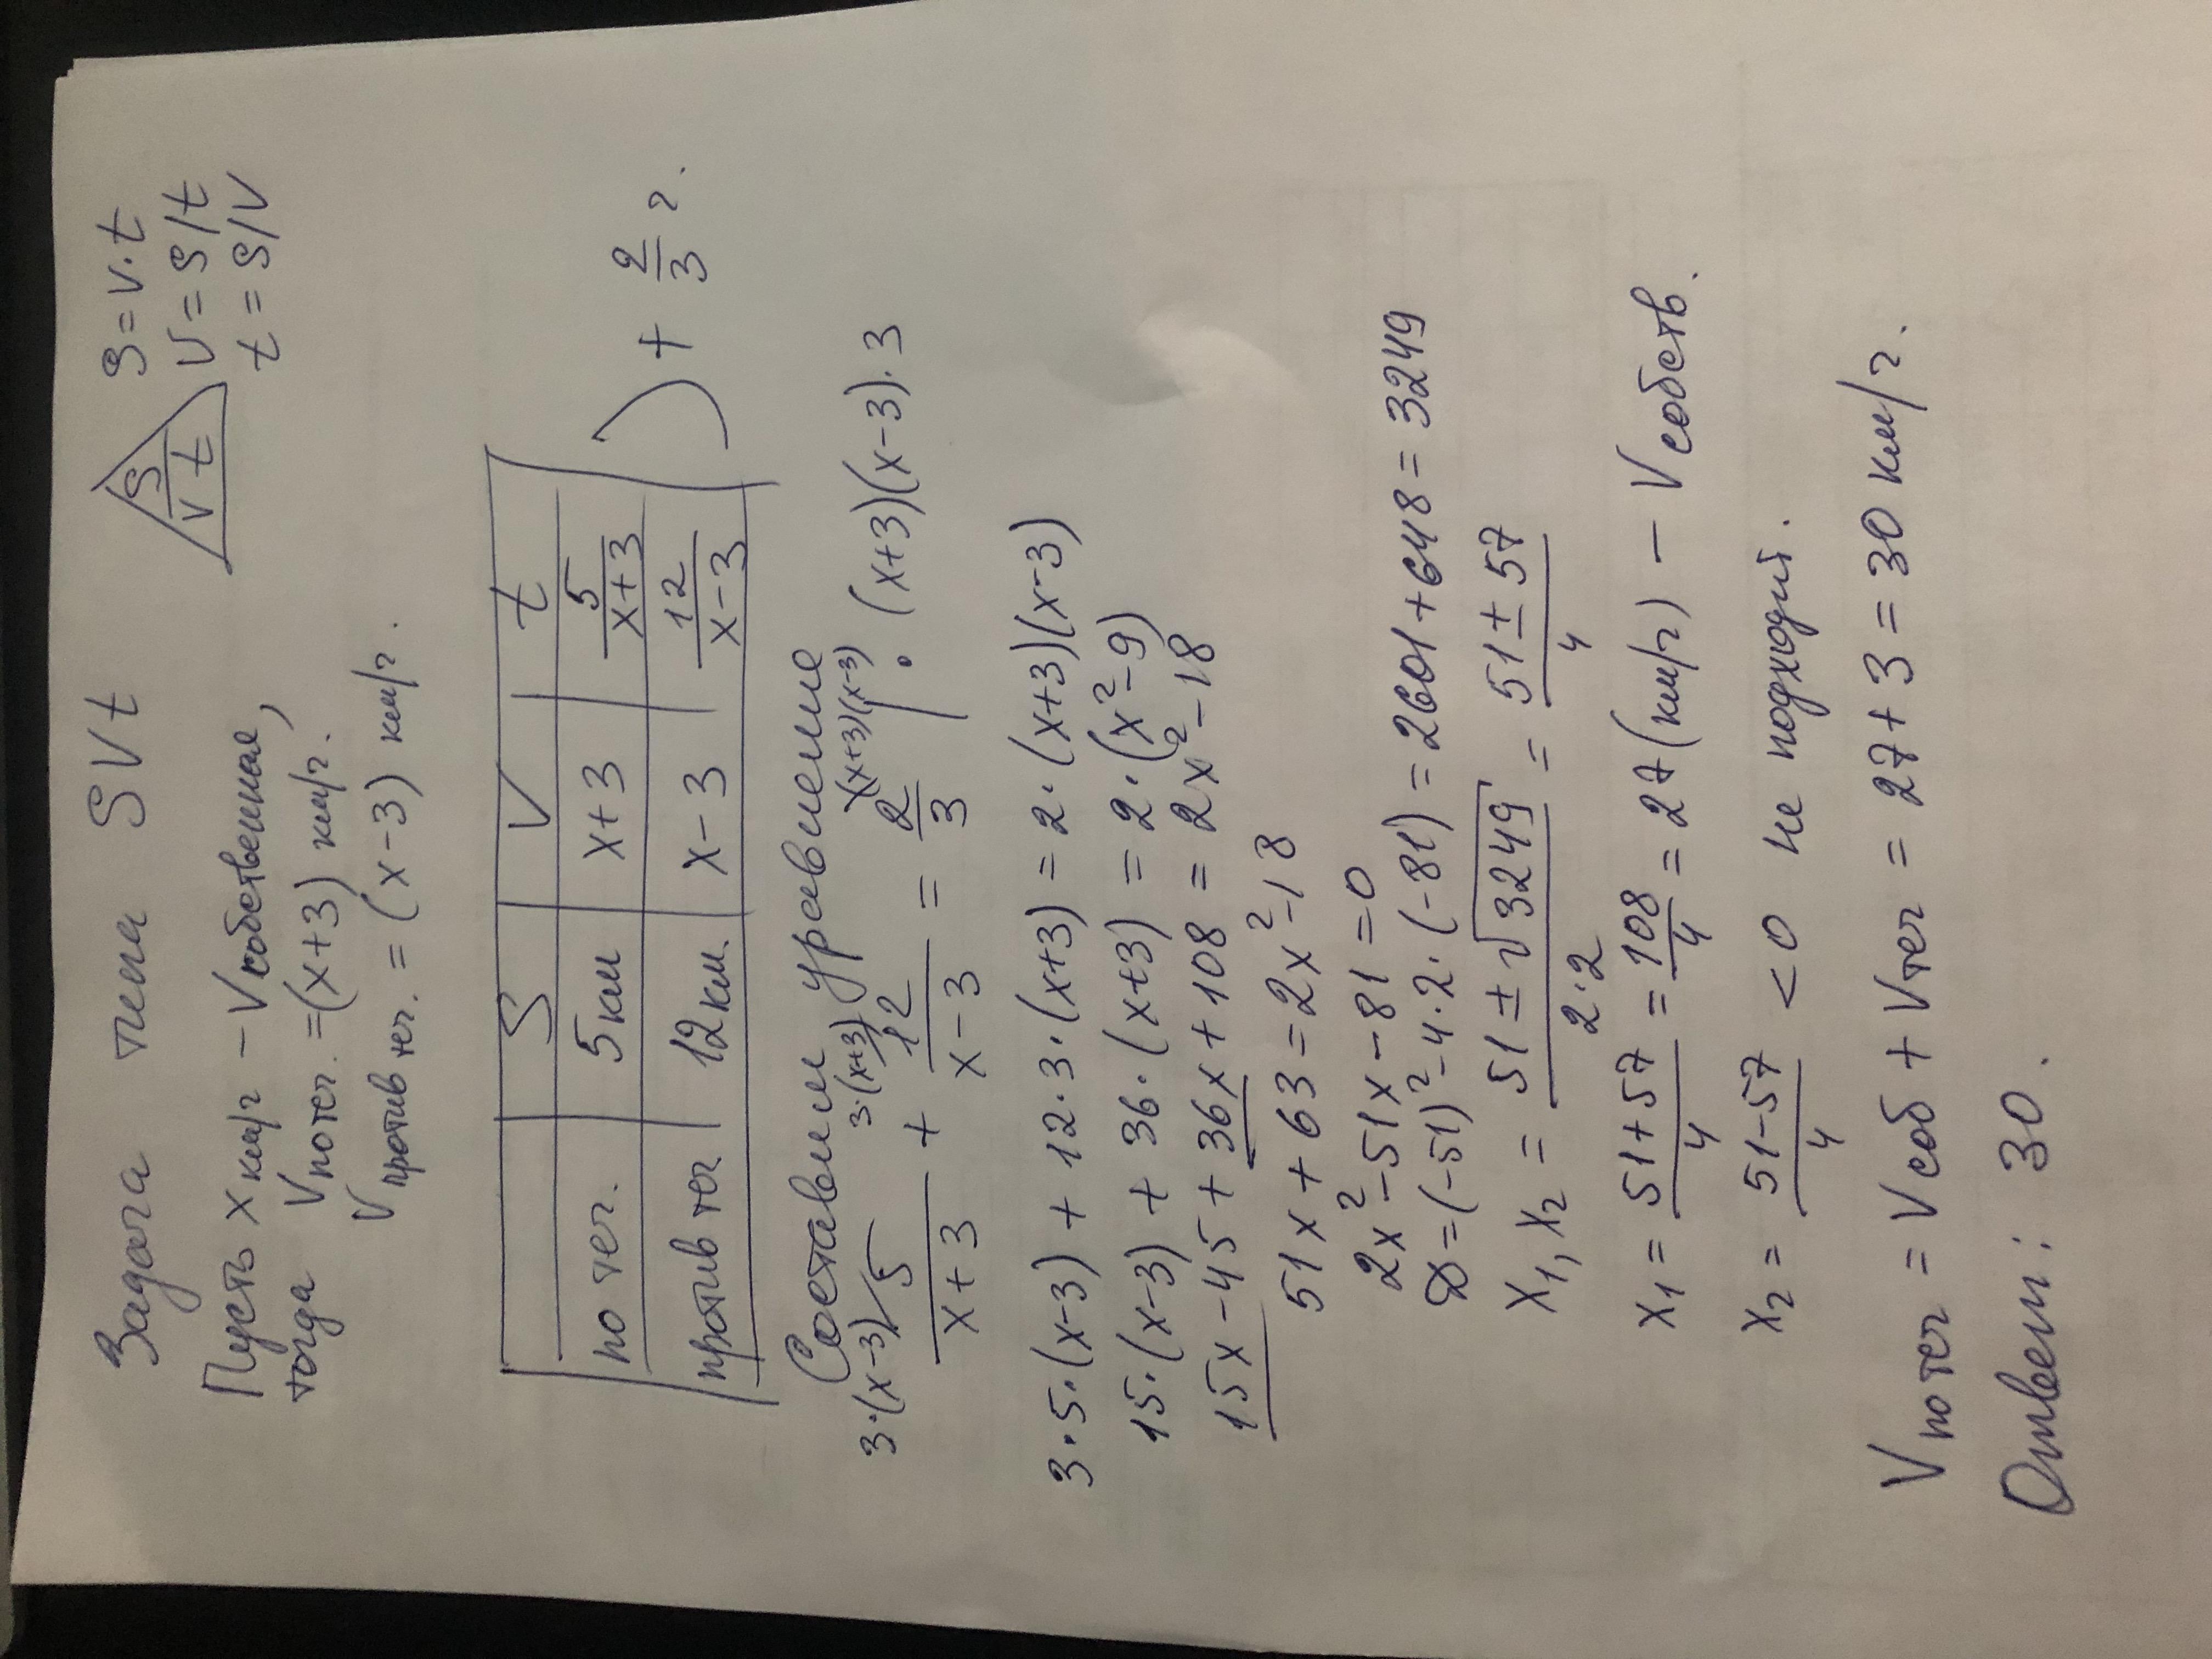 Задача типа SVt
S
V t
S = V·t
V = S/t
t = S/V
Пусть x км/г – Vсобственная,
тогда Vпо теч. = (x+3) км/г.
Vпротив теч. = (x-3) км/г.
S V t
по теч. 5 км x+3 5/(x+3)
против теч 12 км. x-3 12/(x-3)
+ 2/3 г.
Составим уравнение
3·(x-3)/ 5/(x+3) + 3·(x+3)/ 12/(x-3) = (x+3)(x-3)/ 2/3 | · (x+3)(x-3)·3
3·5·(x-3) + 12·3·(x+3) = 2·(x+3)(x-3)
15·(x-3) + 36·(x+3) = 2·(x²-9)
15x - 45 + 36x + 108 = 2x² - 18
51x + 63 = 2x² - 18
2x² - 51x - 81 = 0
D = (-51)² - 4·2·(-81) = 2601 + 648 = 3249
x₁,x₂ = (51 ± √3249)/(2·2) = (51 ± 57)/4
x₁ = (51+57)/4 = 108/4 = 27 (км/г) – Vсобств.
x₂ = (51-57)/4 < 0 не подходит.
Vпо теч = Vсоб + Vтеч = 27 + 3 = 30 км/г.
Ответ: 30.